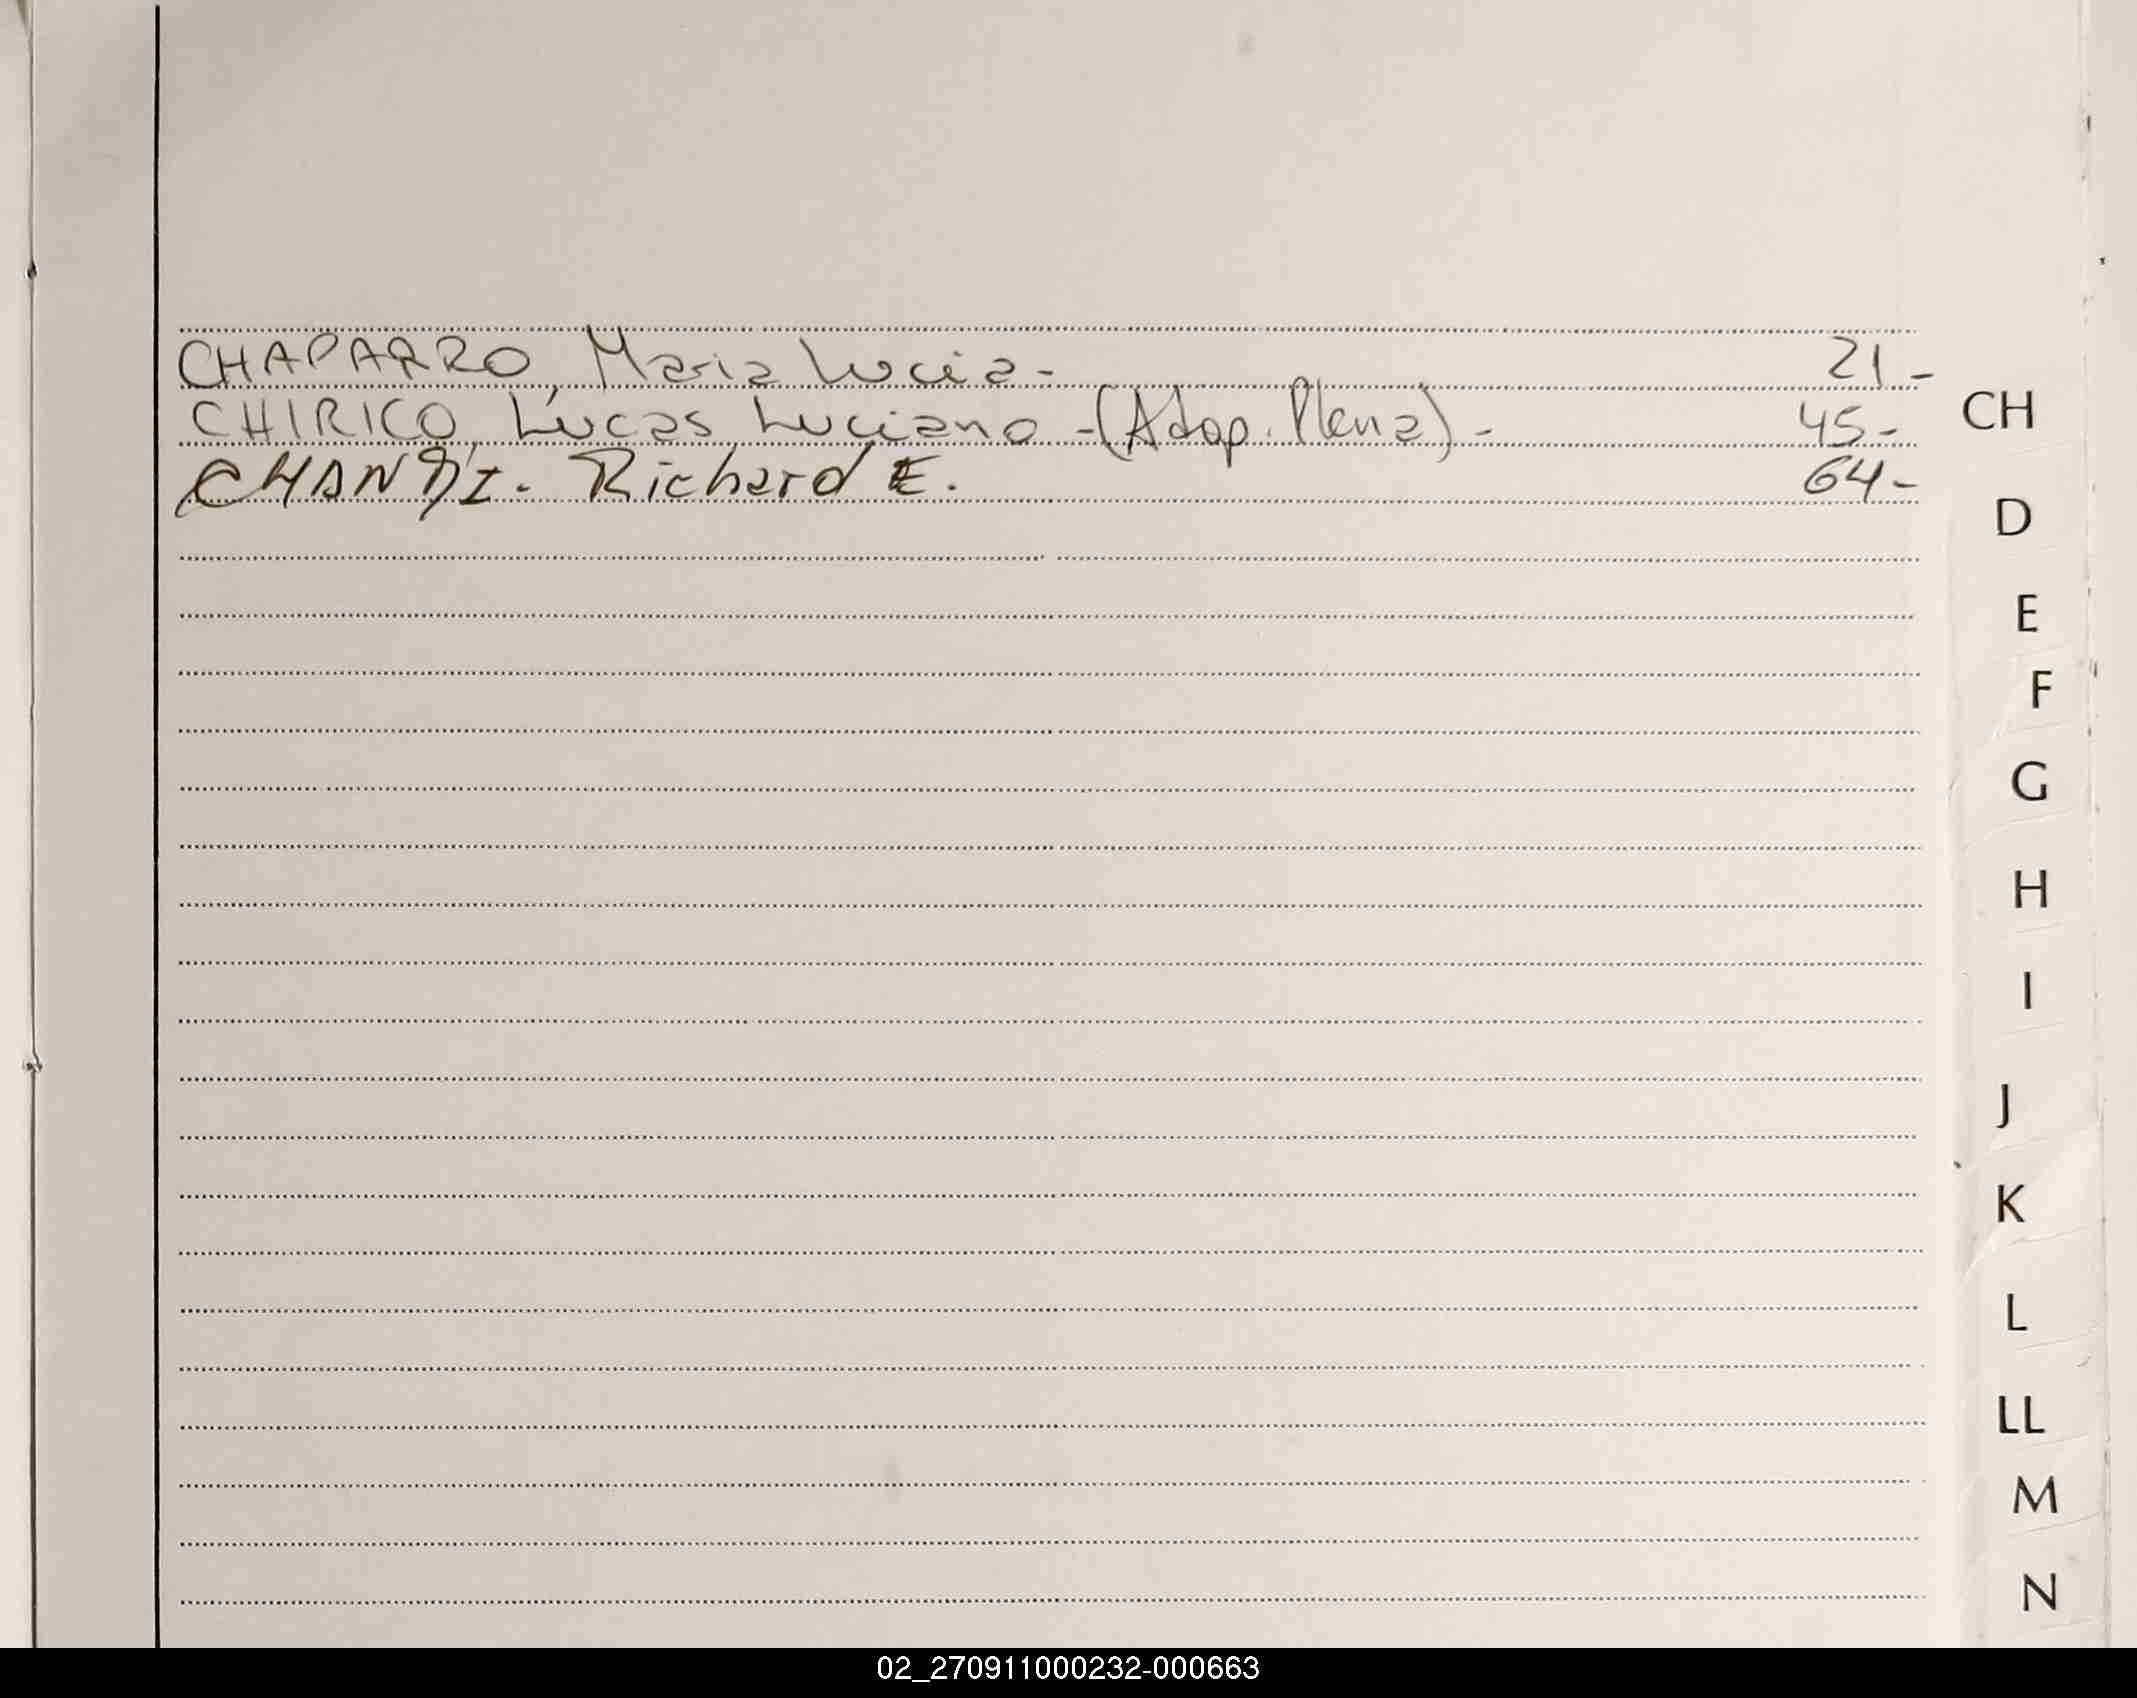 CHAPARRO, Maria Lucia - 21 -
CHIRICO, Lucas Luciano - (Adop. Plena) - 45 -
Richard E. 64 -
CH
D
E
F
G
H
I
J
K
L
LL
M
N
02_270911000232-000663